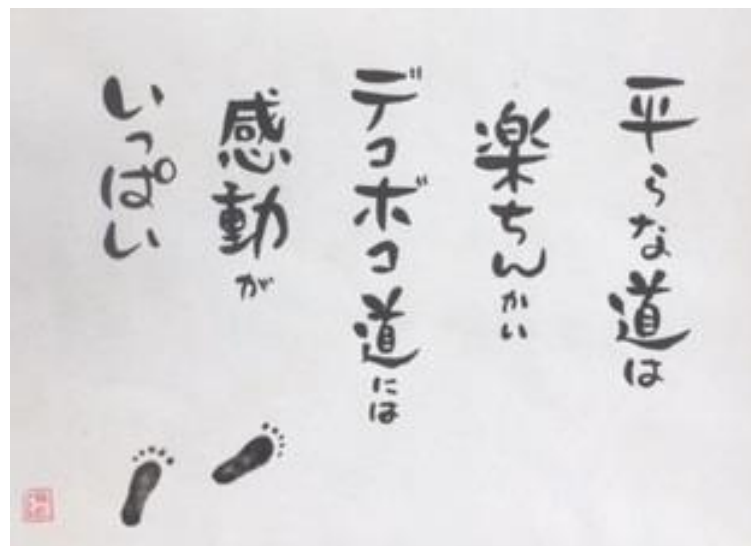 平らな道は
楽ちんかい
デコボコ道には
感動が
いっぱい